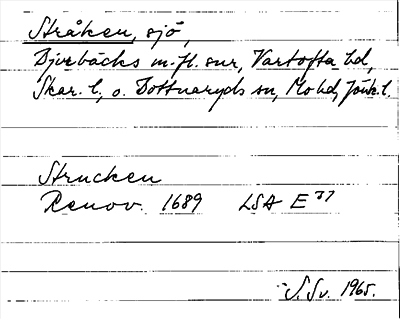 Stråken, sjö,
Djurbäcks m.fl. snr, Vartofta hd,
Skar. l, o. Bottnaryds sn, Mo hd, Jönk. l.
Strucken
Renov. 1689 LSA E 37
S. Sv. 1965.